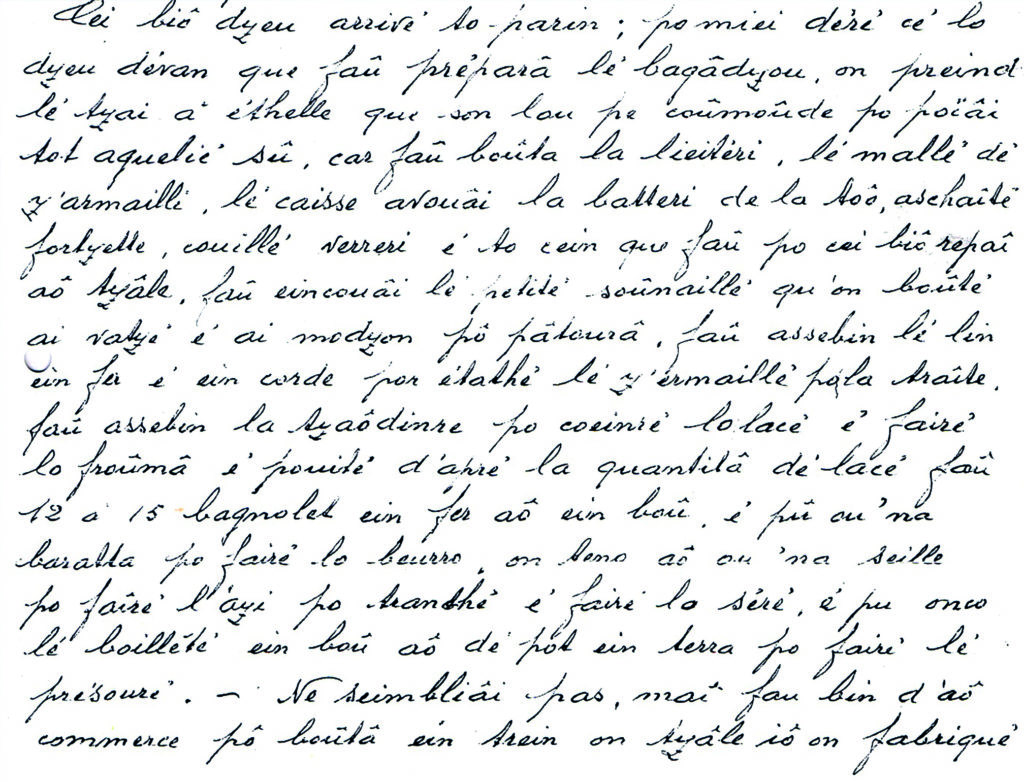 Cei biô dzeu arrivé to parin ; po miei déré cé lo
dzeu dévan que faû préparâ lé bagâdzou, on preind
lé tzai a éthelle que son lou pe coûmoûde po poïâi
tot aquelié sû, car faû boûta la lieitéri, lé mallé dé
z'armailli, lé caisse avouâi la batteri de la toô, aschaîté
fortzette, couillé verreri é to cein que faû po cei biô repaî
aô tzâle, faû eincouâi lé petité soûnaillé qu'on boûté
ai vatzé é ai modzon pô pâtourâ, faû assebin lé lin
ein fer é ein corde por étathé lé z'ermaillé po la traîte,
faû assebin la tzaôdinre po coeinré lo lacé é fairé
lo froûmâ é pouité d'apré la quantitâ dé lacé faû
12 a 15 bagnolet ein fer aô ein boû, é pû ou'na
baratta po fairé lo beurro, on teno aô ou'na seille
po faîré l'âzi po tranthé é fairé lo séré, é pu onco
lé boilleté ein boû aô dé pot ein terra po fairé lé
présouré. – Ne seimbliâi pas, maî fau bin d'aô
commerce pô boûtâ ein trein on tzâle iô on fabriqué